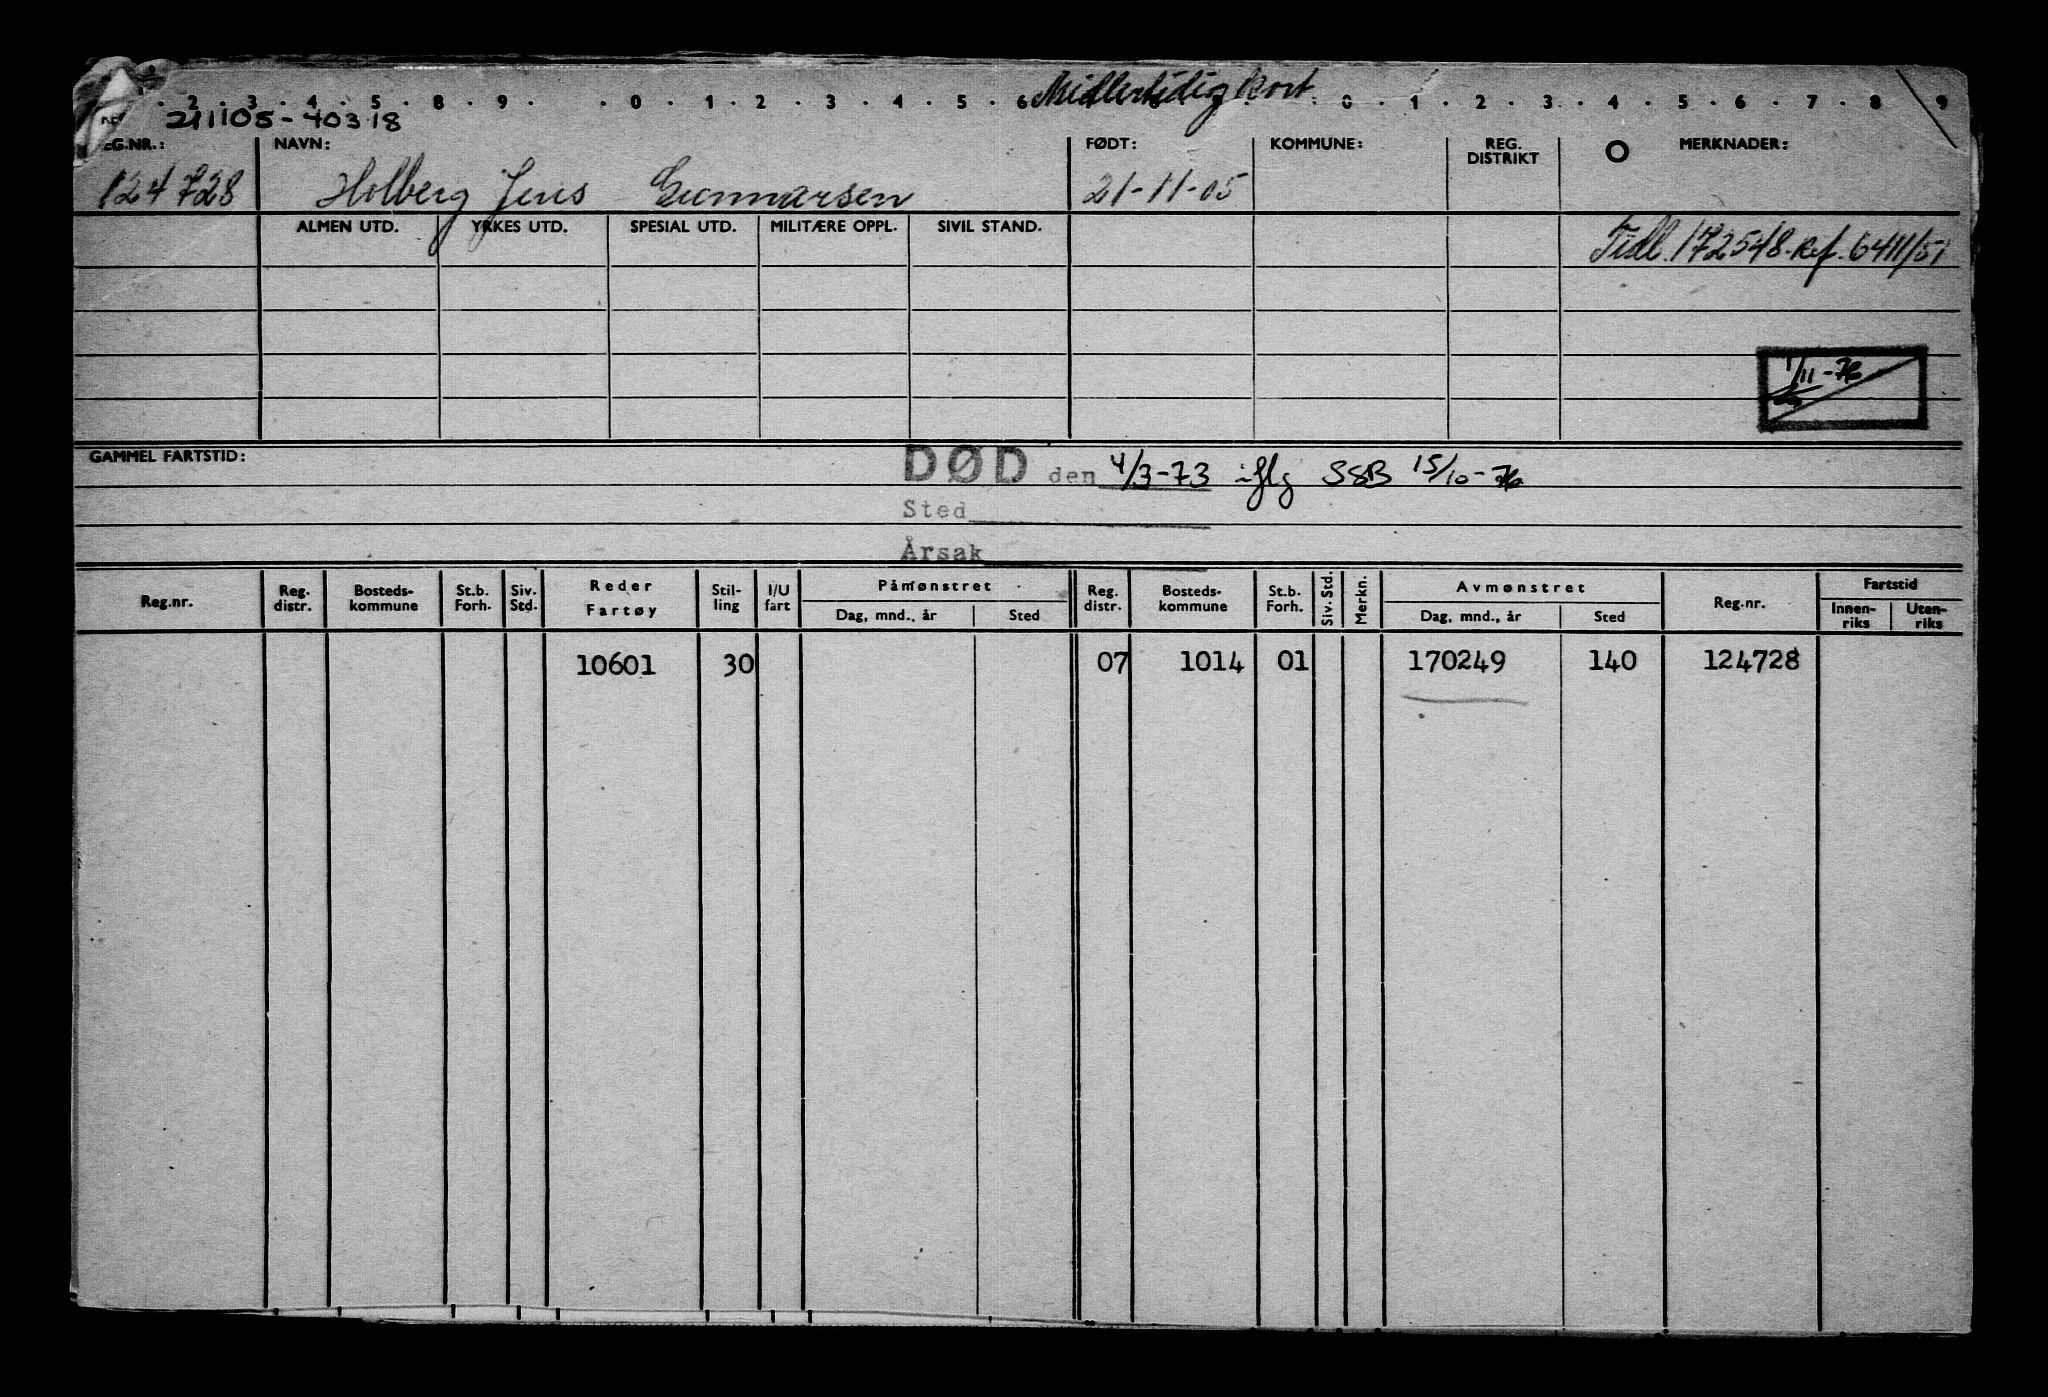 Midlertidig kort
. 2 . 3 . 4 . 5 . 8 . 9 . . 0 . 1 . 2 . 3 . 4 . 5 . 6 0 . 1 . 2 . 3 . 4 . 5 . 6 . 7 . 8 9
211105-40318
REG.NR.: NAVN: FØDT: KOMMUNE: REG. DISTRIKT MERKNADER:
124728 Holberg Jens Gunnarsen 21-11-05
ALMEN UTD. YRKES UTD. SPESIAL UTD. MILITÆRE OPPL. SIVIL STAND.
Tidl. 172548. Ref. 6411/51
1/11-76
GAMMEL FARTSTID:
DØD den 4/3-73 iflg SSB 15/10-76
Sted
Årsak
Reg.nr. Reg. distr. Bosteds-kommune St.b. Forh. Siv. Std. Reder Fartøy Stil-ling I/U fart Påmønstret Dag, mnd., år Sted Reg. distr. Bosteds-kommune St.b. Forh. Siv. Std. Merkn. Avmønstret Dag, mnd., år Sted Reg.nr. Fartstid Innen-riks Uten-riks
10601 30 07 1014 01 170249 140 124728